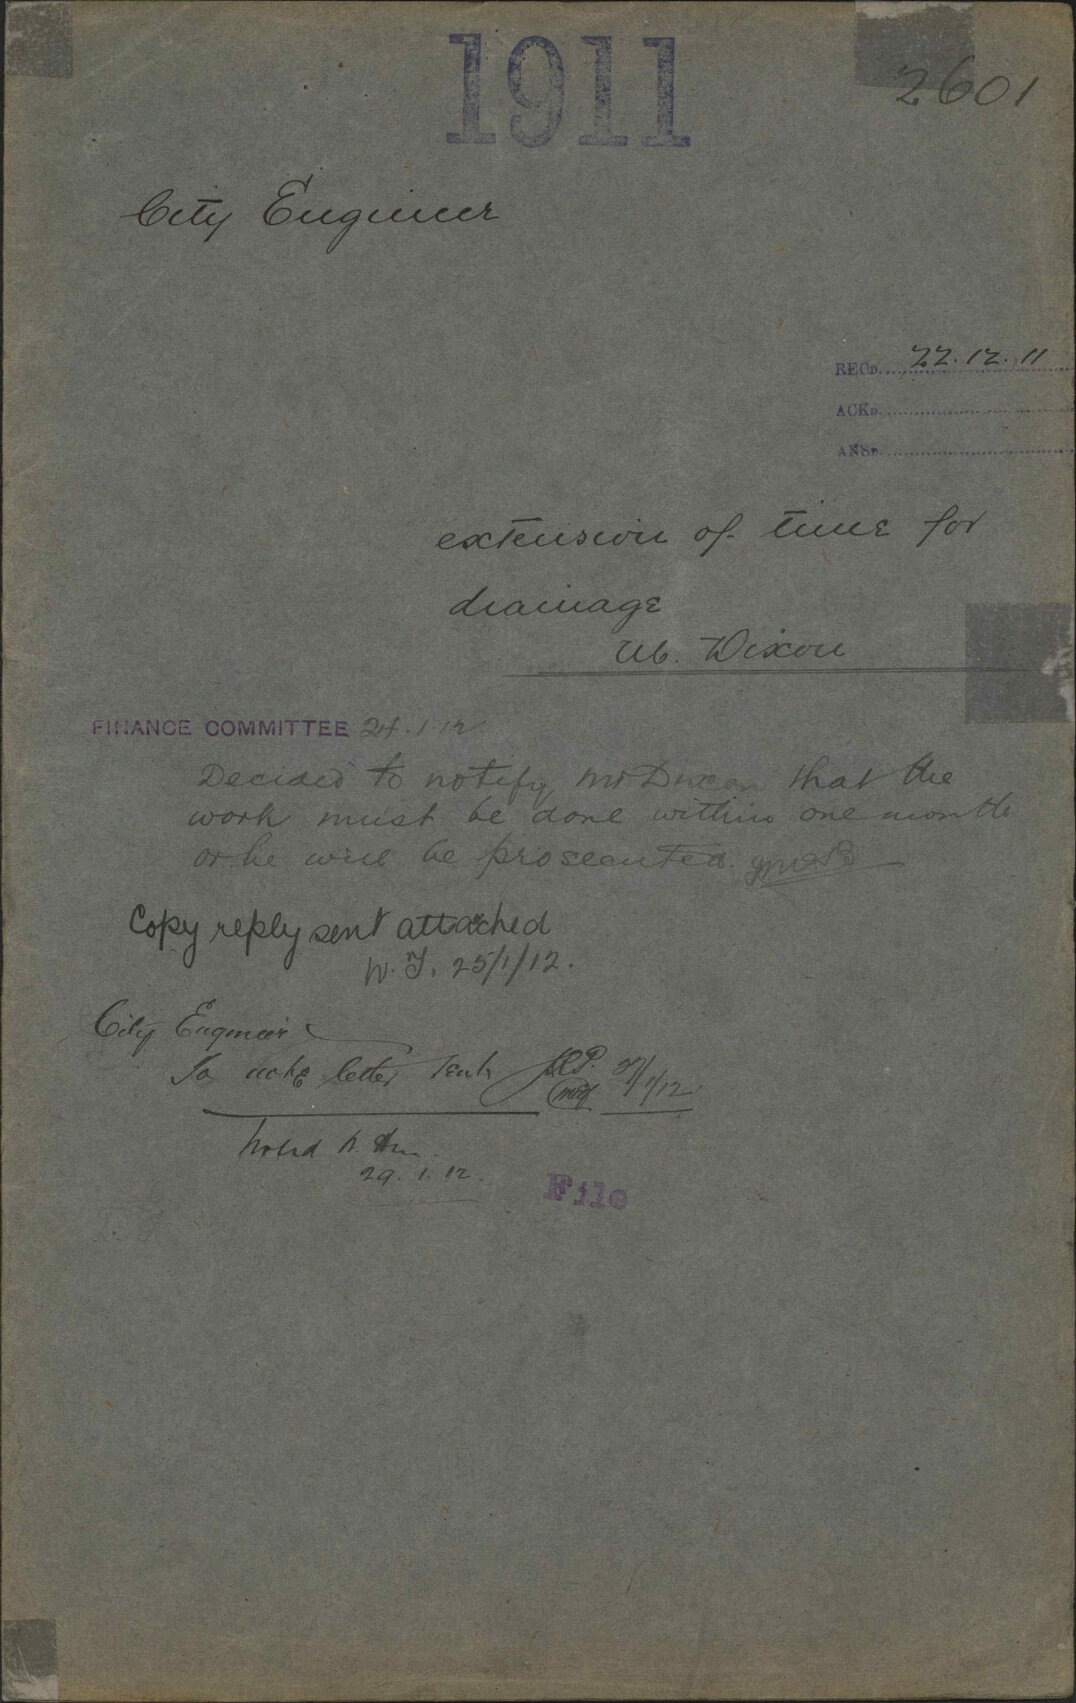 1911
2601
City Engineer
RECD. 22.12.11
ACKD.
ANSD.
extension of time for
drainage
W. Dixon
FINANCE COMMITTEE 24.1.12
Decided to notify Mr Dixon that the
work must be done within one month
or he will be prosecuted.
Copy reply sent attached
W. T. 25/1/12.
City Engineer
To note letter sent
Noted
29.1.12.
File